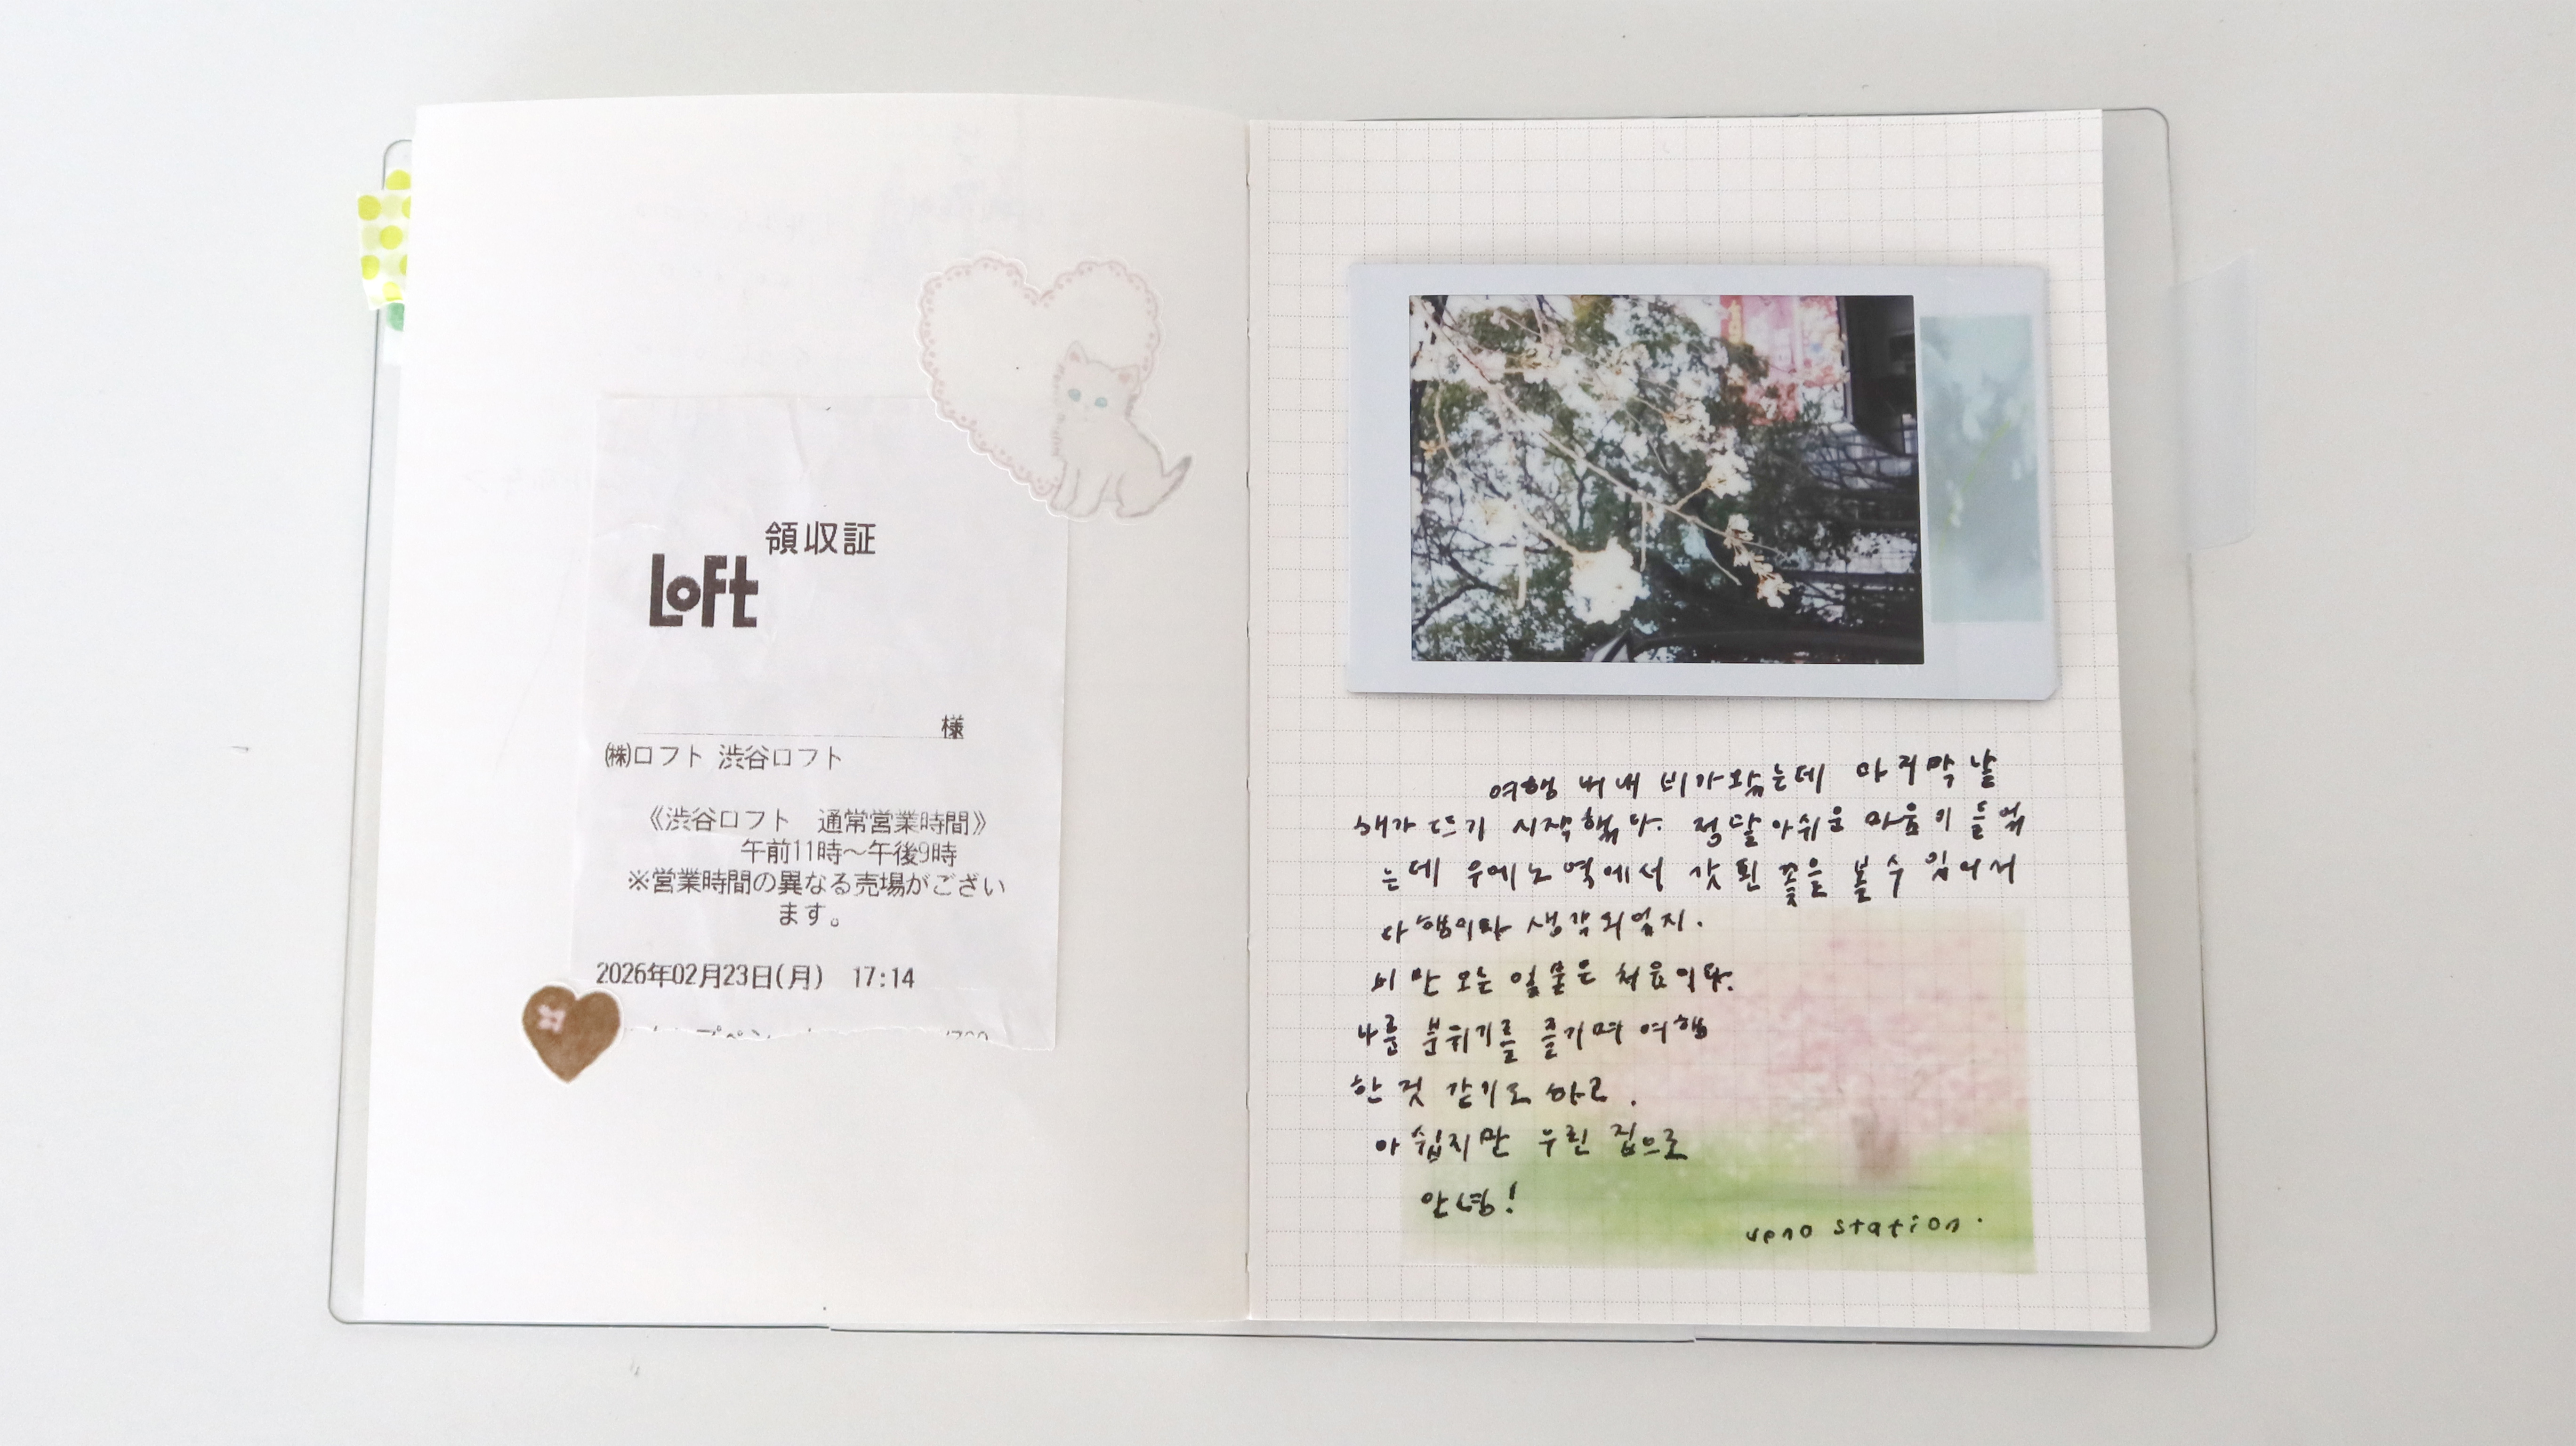 領収証
LoFt
様
㈱ロフト 渋谷ロフト
《渋谷ロフト 通常営業時間》
午前11時～午後9時
※営業時間の異なる売場がござい
ます。
2026年02月23日(月) 17:14
여행 내내 비가 왔는데 마지막 날
해가 뜨기 시작했다. 정말 아쉬운 마음이 들었
는데 우에노 역에서 갓 핀 꽃을 볼 수 있어서
다행이라 생각되었지.
비 만 오는 일본은 처음이다.
나름 분위기를 즐기며 여행
한 것 같기도 하고.
아쉽지만 우린 집으로
안녕!
ueno station.